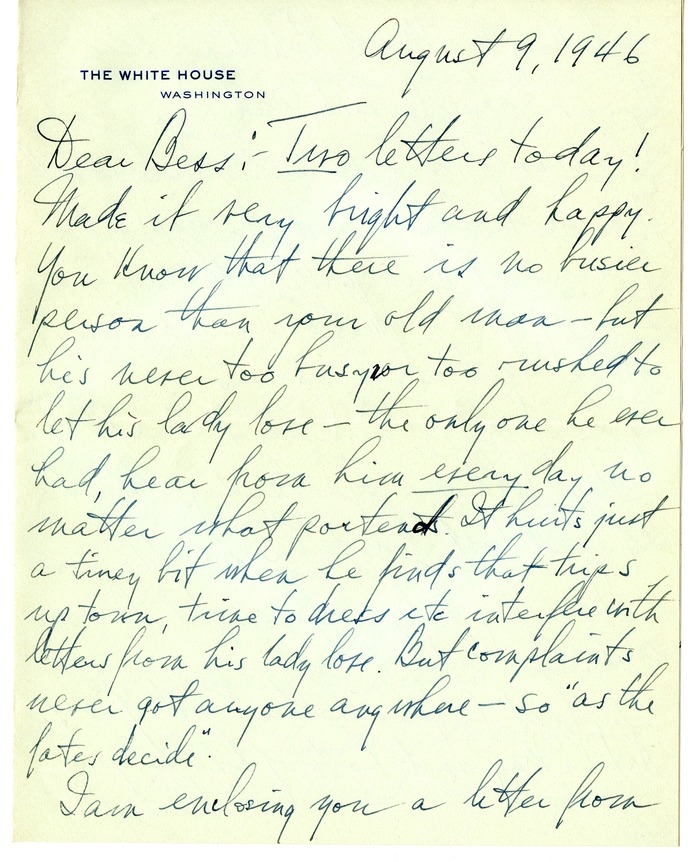 August 9, 1946
THE WHITE HOUSE
WASHINGTON
Dear Bess:- Two letters today!
Made it very bright and happy.
You know that there is no busier
person than your old man - but
he's never too busy or too rushed to
let his lady love - the only one he ever
had, hear from him every day no
matter what portends. It hurts just
a tiney bit when he finds that trips
up town, time to dress etc interfere with
letters from his lady love. But complaints
never got anyone anywhere - so "as the
fates decide".
I am enclosing you a letter from